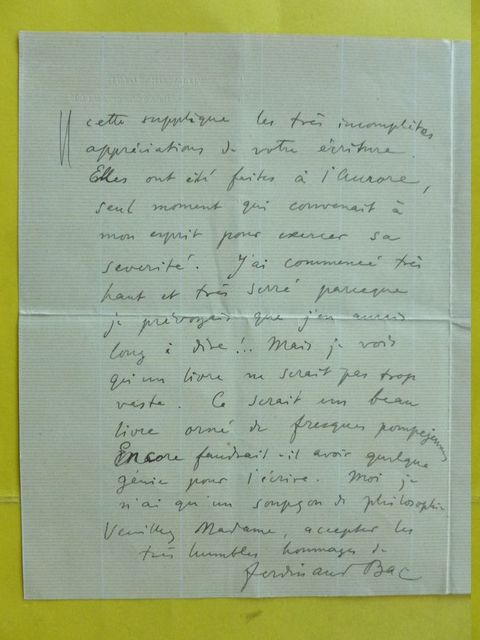 cette supplique les très incomplètes
appréciations de votre écriture.
Elles ont été faites à l'Aurore,
seul moment qui convenait à
mon esprit pour exercer sa
severité. J'ai commencé très
haut et très serré parceque
je prévoyais que j'en aurais
long à dire!.. Mais je vois
qu'un livre ne serait pas trop
vaste. Ce serait un beau
livre orné de fresques pompejennes
Encore faudrait-il avoir quelque
génie pour l'écrire. Moi je
n'ai qu'un soupçon de philosophie
Veuillez Madame, accepter les
très humbles hommages de
Ferdinand Bac